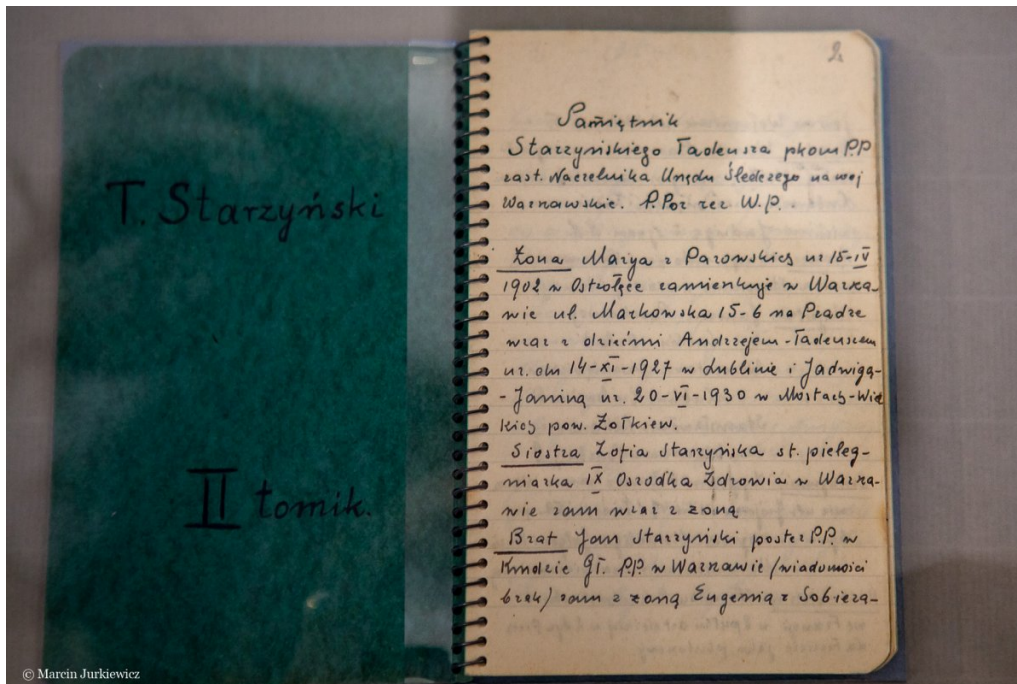 T. Starzyński
II tomik.
2
Pamiętnik
Starzyńskiego Tadeusza pkom P.P
zast. Naczelnika Urzędu Śledczego na woj
Warszawskie. P.Por rez W.P.
Żona Marya z Parowskich ur 15-IV
1902 w Ostrołęce zamieszkuje w Warsza-
wie ul. Markowska 15-6 na Pradze
wraz z dziećmi Andrzejem-Tadeuszem
ur. dn 14-XI-1927 w Lublinie i Jadwigą-
-Janiną ur. 20-VI-1930 w Mostach-Wiel
kich pow. Żołkiew.
Siostra Zofia Starzyńska st. pieleg-
niarka IX Osrodka Zdrowia w Warsza-
wie zam wraz z żoną
Brat Jan Starzyński poster P.P. w
Kmdzie Gł. P.P. w Warszawie (wiadomości
brak) zam z żoną Eugenią z Sobiera-
© Marcin Jurkiewicz